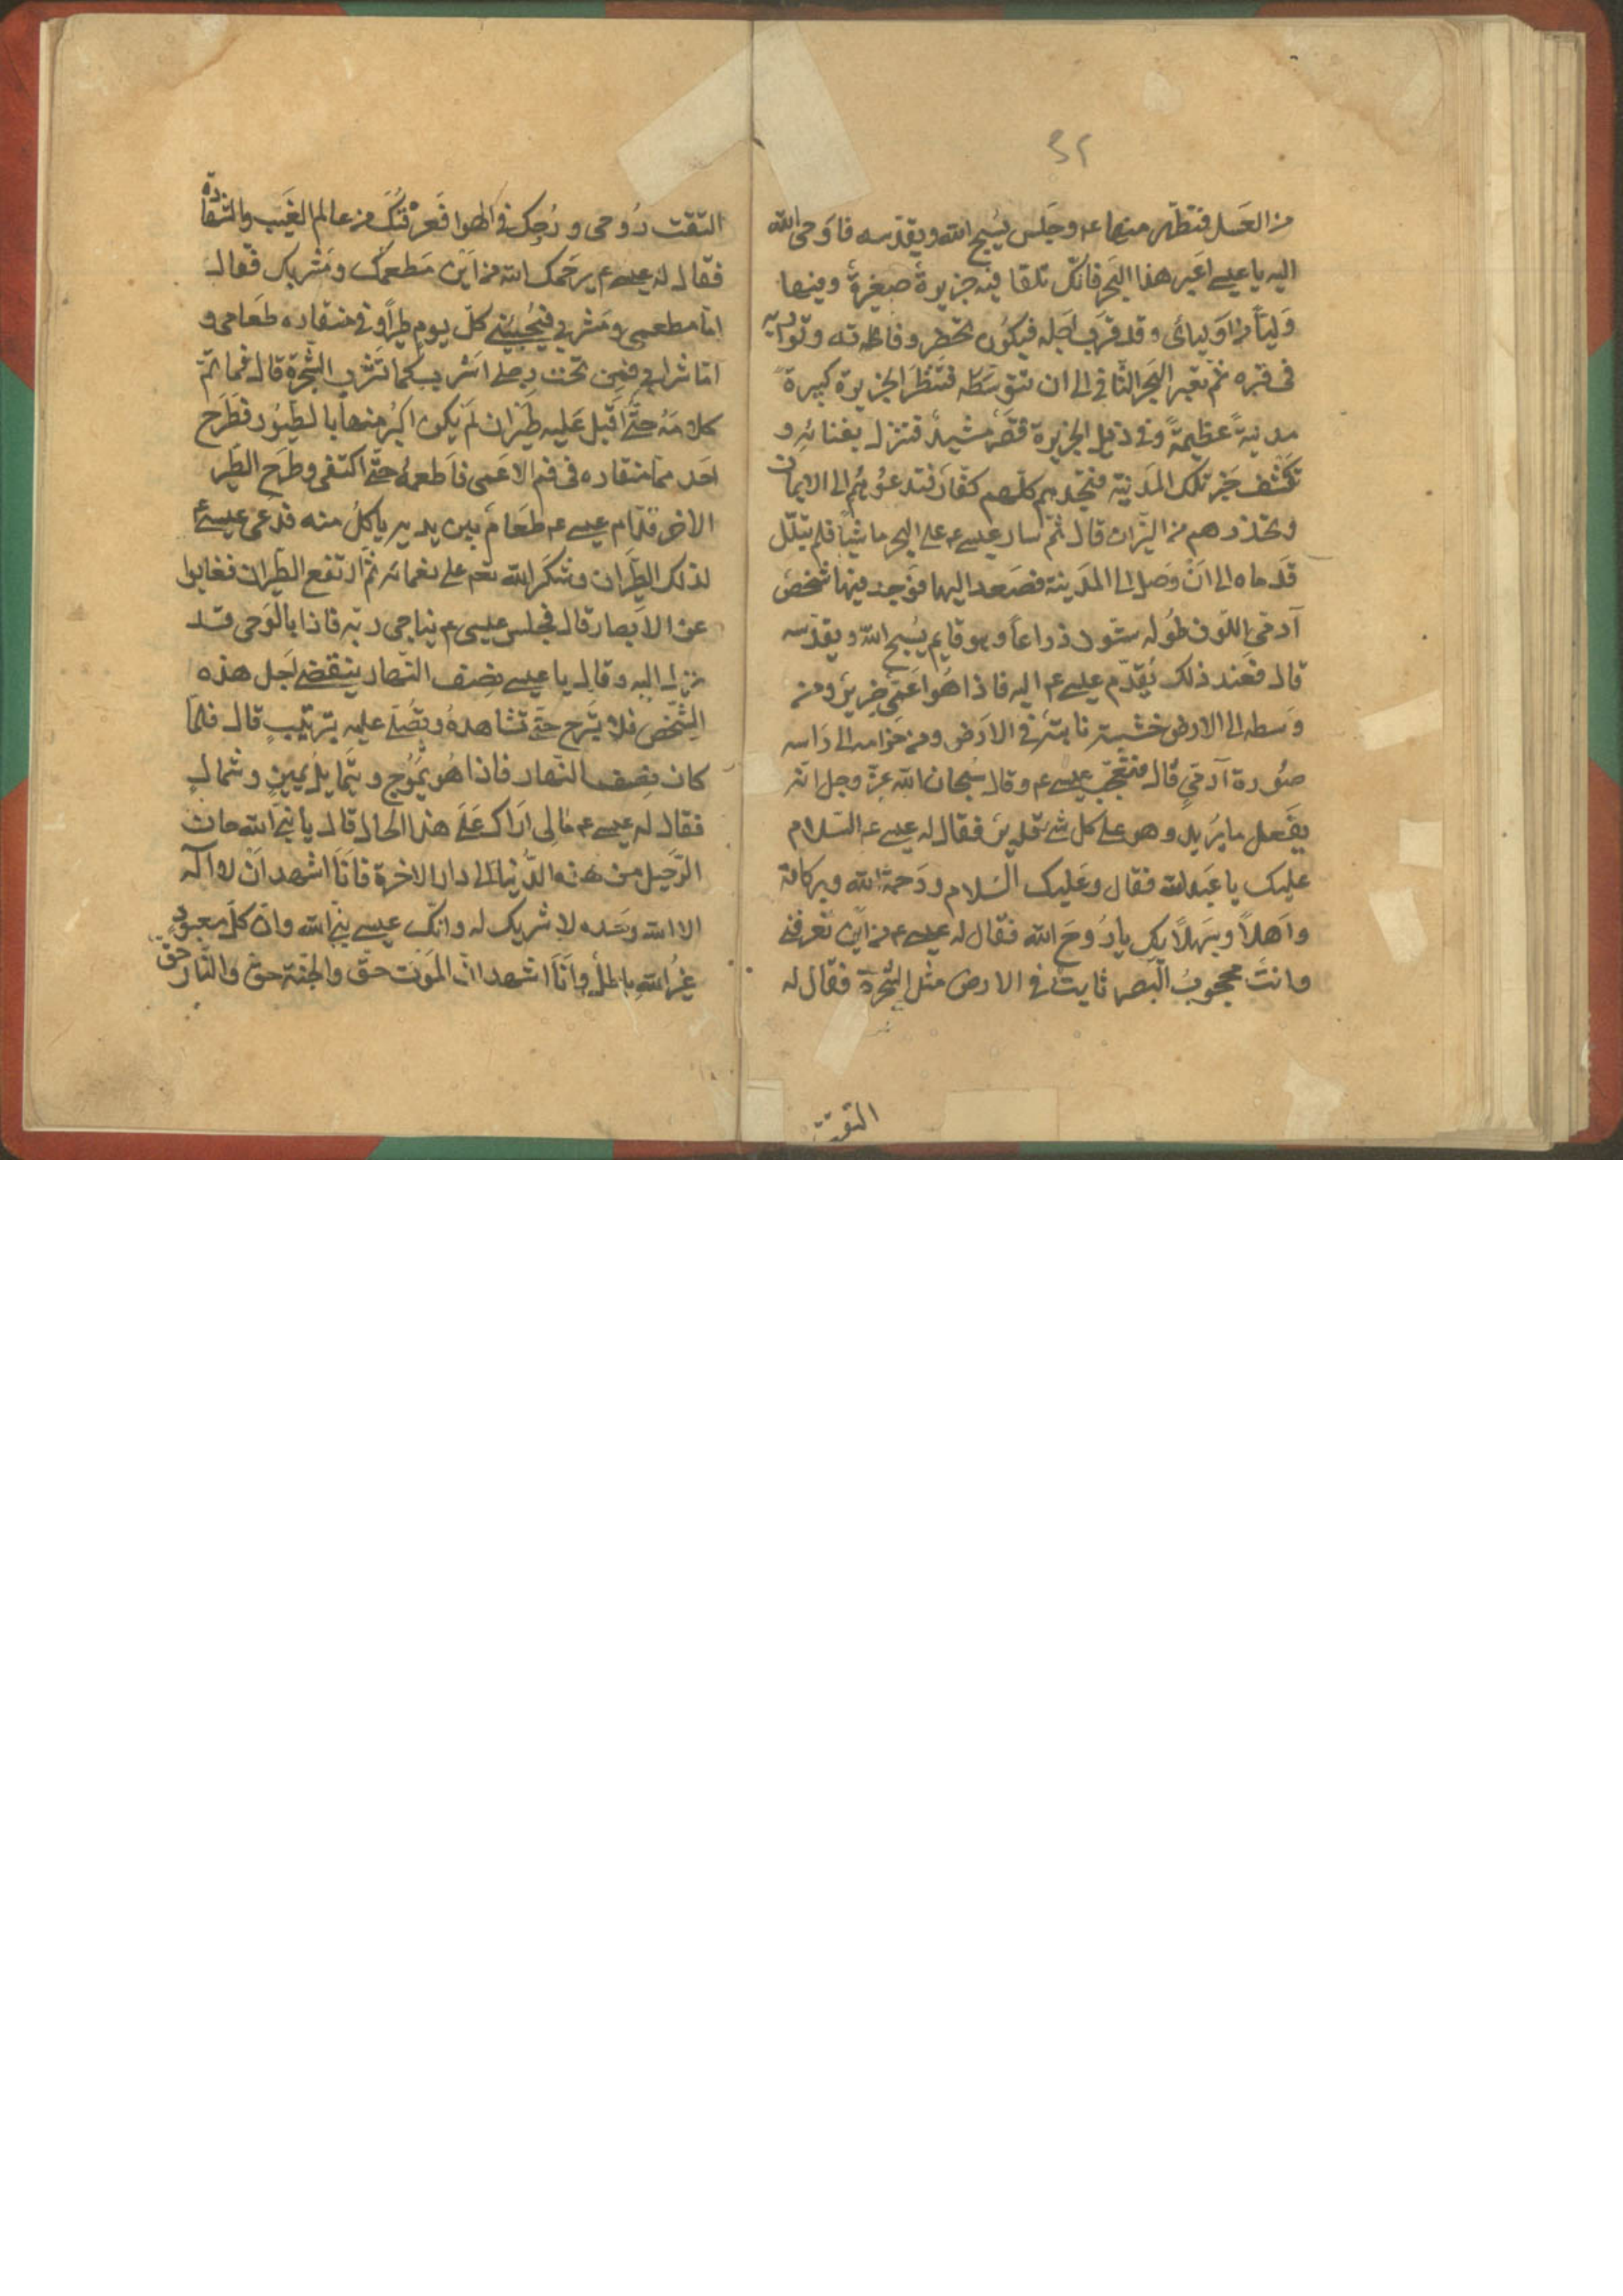 ٣٢
من العسل فتطهر منها عم وجلس يسبح الله ويقدسه فاوحى الله
اليه يا عيسى اعبر هذا البحر فانك تلقا فيه جزيرة صغيرة وفيها
وليا من اوليائى وقد قرب اجله فيكون تحضر وفاته وتواريه
فى قبره ثم تعبر البحر الثانى الى ان تتوسطه فتنظر الجزيرة كبيرة
مدينة عظيمة وفى ذيل الجزيرة قصر مشيد فتنزل بفنائه و
تكشف خبر تلك المدينة فتجدهم كلهم كفار فتدعوهم الى الايمان
وتحذرهم من النيران قال ثم سار عيسى عم على البحر ماشيا فلم تبتل
قدماه الى ان وصل الى المدينة فصعد اليها فوجد فيها شخص
آدمى اللون طوله ستون ذراعا وهو قايم يسبح الله ويقدسه
قال فعند ذلك تقدم عيسى عم اليه فاذا هو اعمى ضرير ومن
وسطه الى الارض خشبة نابتة فى الارض ومن حزامه الى راسه
صورة آدمي قال فتعجب عيسى عم وقال سبحان الله عز وجل انه
يفعل ما يريد وهو على كل شئ قدير فقال له عيسى عم السلام
عليك يا عبد الله فقال وعليك السلام ورحمة الله وبركاته
واهلا وسهلا بك يا روح الله فقال له عيسى عم من اين تعرفنى
وانت محجوب البصر ثابت فى الارض مثل الشجرة فقال له
التقت
التقت روحى وروحك فى الهوا فعرفتك من عالم الغيب والشهادة
فقال له عيسى عم يرحمك الله من اين مطعمك ومشربك فقال
اما مطعمى ومشربى فيجيئنى كل يوم طيرا وفى منقاره طعامى و
اما شرابى فمن تحت رجلى اشرب كما تشرب الشجرة قال فما تم
كلامه حتى اقبل عليه طيران لم يكن اكبر منها بالطيور فطرح
احدهما منقاره فى فم الاعمى فاطعمه حتى اكتفى وطرح الطير
الاخر قدام عيسى عم طعام بين يديه ياكل منه فدعى عيسى عم
لذلك الطيران وشكر الله تعم على نعمائه ثم ارتفع الطيران فغابوا
عن الابصار قال فجلس عيسى عم يناجى ربه فاذا بالوحى قد
نزل اليه وقال يا عيسى نصف النهار ينقضى اجل هذه
الشخص فلا تبرح حتى تشاهده وتصلى عليه بترتيب قال فلما
كان نصف النهار فاذا هو يموج ويتمايل يمين وشمال
فقال له عيسى عم مالى اراك على هذا الحال قال يا نبى الله حان
الرحيل من هذه الدنيا الى دار الاخرة فانا اشهد ان لا اله
الا الله وحده لا شريك له وانك عيسى نبى الله وان كل معبود
غير الله باطل وانا اشهد ان الموت حق والجنة حق والنار حق